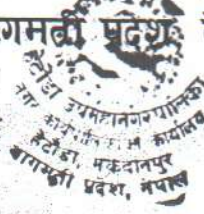 गमती प्रदेश
हेटौंडा उपमहानगरपालिका
नगर कार्यपालिकाको कार्यालय
हेटौंडा, मकवानपुर
बागमती प्रदेश, नेपाल